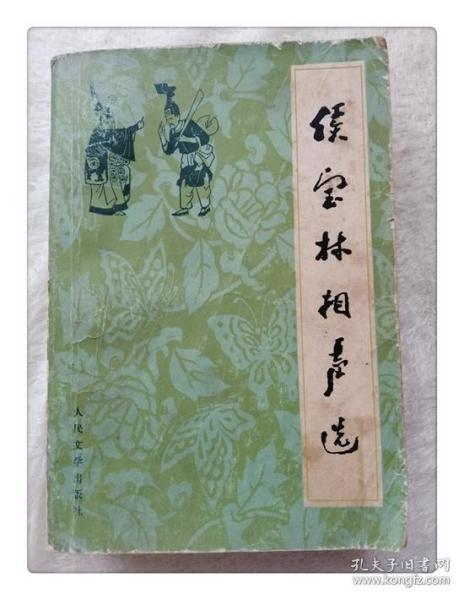 侯宝林相声选
人民文学出版社
孔夫子旧书网
www.kongfz.com